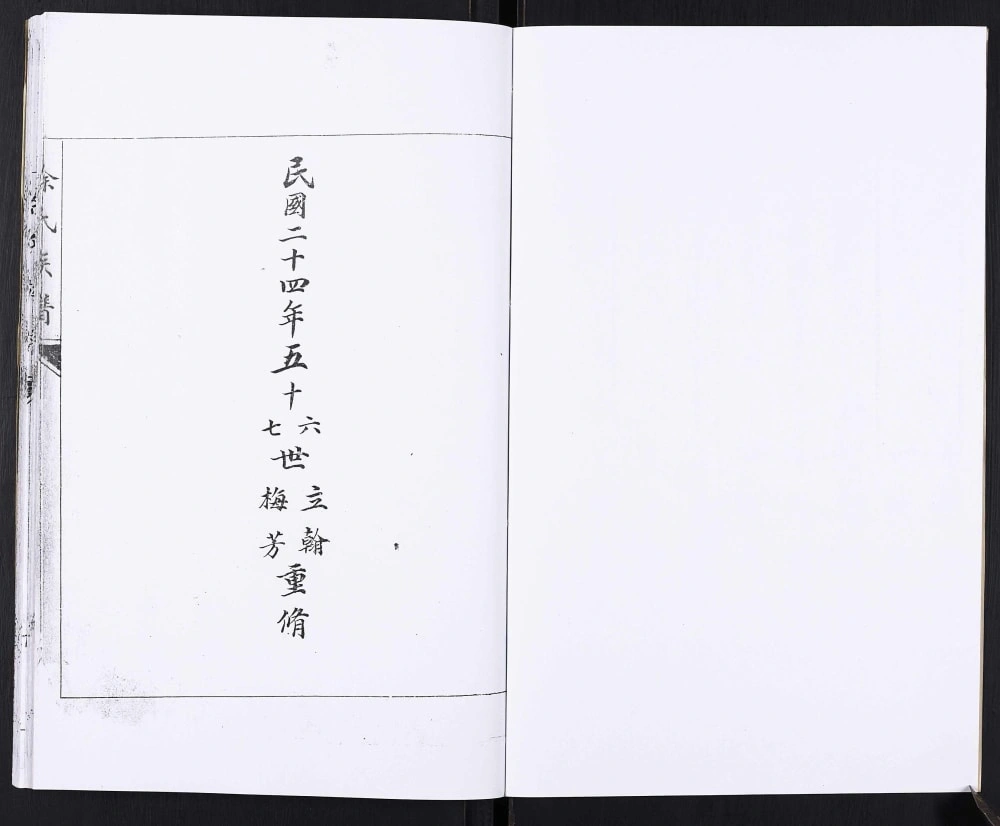 民國二十四年五十六七世立翰梅芳重脩
余氏族譜